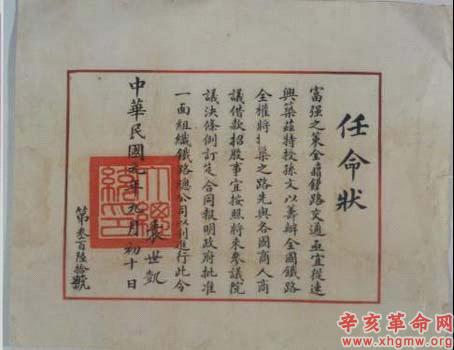 任命狀
富强之策全藉鐵路交通亟宜從速
興築茲特授孫文以籌辦全國鐵路
全權將擬築之路先與各國商人商
議借款招股事宜按照將來參議院
議決條例訂定合同報明政府批准
一面組織鐵路總公司以利進行此令
袁世凱
中華民國元年九月初十日
第叁百陸拾號
辛亥革命网
www.xhgmw.org